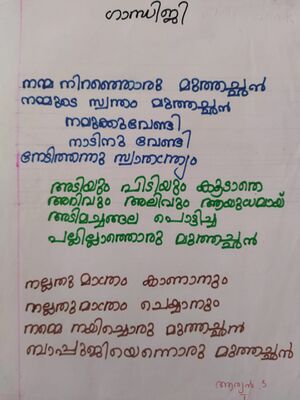 ഗാന്ധിജി
നന്മ നിറഞ്ഞൊരു മുത്തച്ഛൻ
നമ്മുടെ സ്വന്തം മുത്തച്ഛൻ
നമുക്കുവേണ്ടി
നാടിനു വേണ്ടി
നേടിത്തന്നു സ്വാതന്ത്ര്യം
അടിയും പിടിയും കൂടാതെ
അറിവും അലിവും ആയുധമായ്
അടിമച്ചങ്ങല പൊട്ടിച്ച
പല്ലില്ലാത്തൊരു മുത്തച്ഛൻ
നല്ലതു മാത്രം കാണാനും
നല്ലതുമാത്രം ചെയ്യാനും
നമ്മെ നയിച്ചൊരു മുത്തച്ഛൻ
ബാപ്പുജിയെന്നൊരു മുത്തച്ഛൻ
ആര്യൻ. S